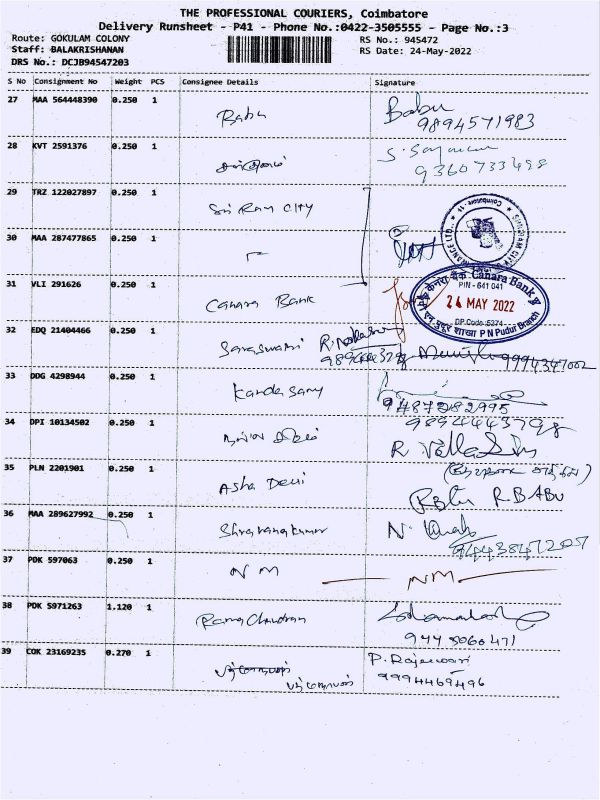 THE PROFESSIONAL COURIERS, Coimbatore
Delivery Runsheet - P41 - Phone No.:0422-3505555 - Page No.:3
Route: GOKULAM COLONY RS No.: 945472
Staff: BALAKRISHANAN RS Date: 24-May-2022
DRS No.: DCJB94547203
S No Consignment No Weight PCS Consignee Details Signature
27 MAA 564448390 0.250 1 Babu Babu
9894571983
28 KVT 2591376 0.250 1
9360733498
29 TRZ 122027897 0.250 1 Sri Ram City
30 MAA 287477865 0.250 1
31 VLI 291626 0.250 1 Canara Bank
केनरा बैंक Canara Bank
PIN - 641 041
24 MAY 2022
DP.Code:5374
शाखा P N Pudur Branch
32 EDQ 21404466 0.250 1 Saraswathi 9994347002
33 DDG 4298944 0.250 1 Kandasamy
9487282995
34 DPI 10134502 0.250 1 9894443798
35 PLN 2201901 0.250 1 Asha Devi R BABU
36 MAA 289627992 0.250 1 Shravanakumar
37 PDK 597063 0.250 1 NM NM
38 PDK 5971263 1.120 1 Ramachandran
39 COK 23169235 0.270 1 P. Rajeswari
9994469496